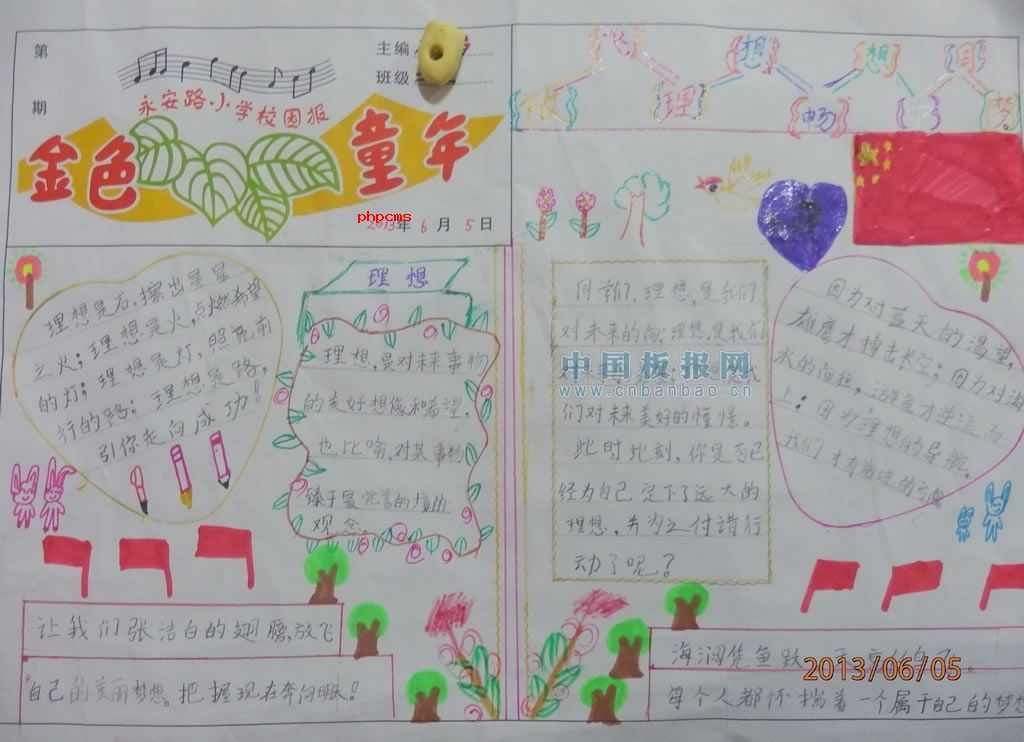 第
期
主编
班级
永安路小学校园报
金色
童年
phpcms
2013年 6 月 5 日
理
想
畅
想
国
梦。
理想是石，擦出星星
之火；理想是火，点燃希望
的灯；理想是灯，照亮前
行的路；理想是路，
引你走向成功！
理想
理想，是对未来事物
的美好想像和希望。
也比喻，对某事物
臻于最完善的境的
观念。
同学们，理想，是我们
对未来的向；理想，是我们
们对未来美好的憧憬。
此时此刻，你是否已
经为自己定下了远大的
理想，并为之付诸行
动了呢？
因为对蓝天的渴望，
雄鹰才搏击长空；因为对海
水的，游鱼才逆流而
上；因为理想的导航，
我们才有前进的方
中国板报网
www.cnbanbao.cn
让我们张洁白的翅膀，放飞
自己的美丽梦想。把握现在奔向明！
海阔凭鱼跃
每个人都怀揣着一个属于自己的梦想
2013/06/05